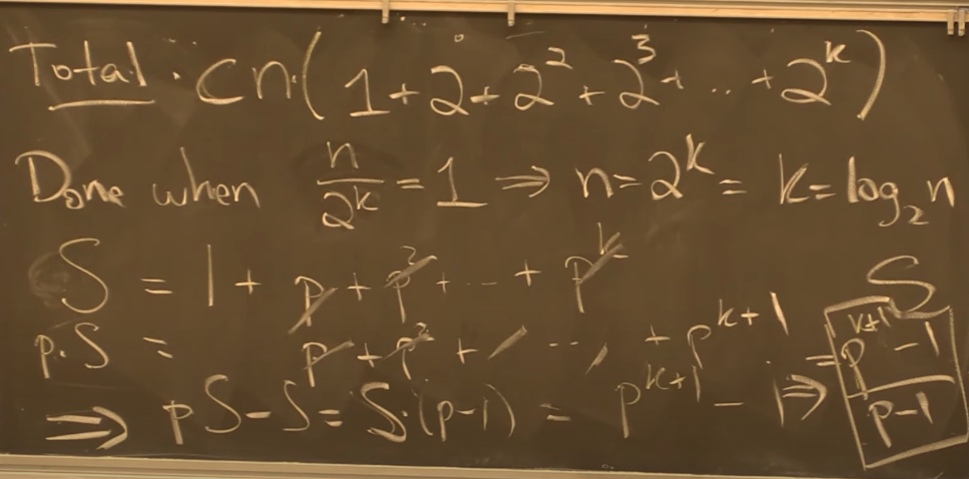 Total. cn·(1+2+2²+2³+...+2ᵏ)
Done when n/2ᵏ = 1 ⇒ n=2ᵏ = k=log₂n
S = 1 + p + p² + ... + pᵏ
p·S = p + p² + ... + pᵏ⁺¹
⇒ pS-S = S·(p-1) = pᵏ⁺¹ - 1 ⇒ S = (pᵏ⁺¹ - 1)/(p-1)